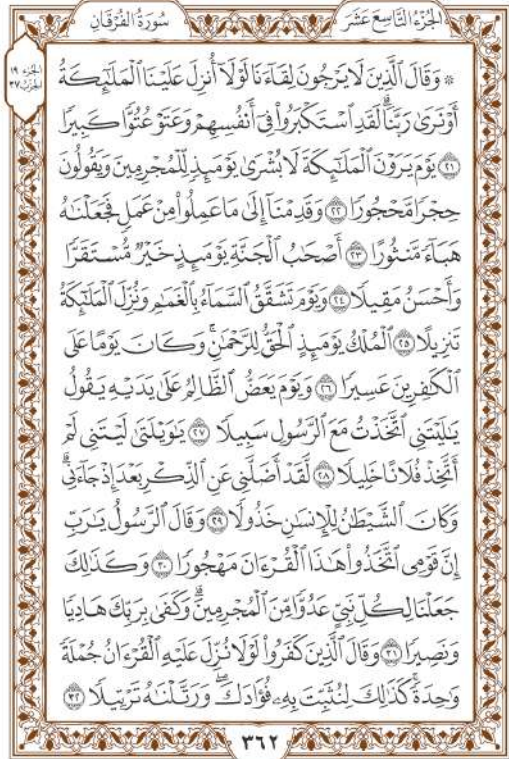 سُورَةُ الفُرْقَانِ
الجُزْءُ التَّاسِعَ عَشَرَ
الجزء ١٩
الحزب ٣٧
۞ وَقَالَ ٱلَّذِينَ لَا يَرْجُونَ لِقَآءَنَا لَوْلَآ أُنزِلَ عَلَيْنَا ٱلْمَلَٰٓئِكَةُ
أَوْ نَرَىٰ رَبَّنَاۗ لَقَدِ ٱسْتَكْبَرُوا۟ فِىٓ أَنفُسِهِمْ وَعَتَوْ عُتُوًّا كَبِيرًا
٢١ يَوْمَ يَرَوْنَ ٱلْمَلَٰٓئِكَةَ لَا بُشْرَىٰ يَوْمَئِذٍ لِّلْمُجْرِمِينَ وَيَقُولُونَ
حِجْرًا مَّحْجُورًا ٢٢ وَقَدِمْنَآ إِلَىٰ مَا عَمِلُوا۟ مِنْ عَمَلٍ فَجَعَلْنَٰهُ
هَبَآءً مَّنثُورًا ٢٣ أَصْحَٰبُ ٱلْجَنَّةِ يَوْمَئِذٍ خَيْرٌ مُّسْتَقَرًّا
وَأَحْسَنُ مَقِيلًا ٢٤ وَيَوْمَ تَشَقَّقُ ٱلسَّمَآءُ بِٱلْغَمَٰمِ وَنُزِّلَ ٱلْمَلَٰٓئِكَةُ
تَنزِيلًا ٢٥ ٱلْمُلْكُ يَوْمَئِذٍ ٱلْحَقُّ لِلرَّحْمَٰنِۚ وَكَانَ يَوْمًا عَلَى
ٱلْكَٰفِرِينَ عَسِيرًا ٢٦ وَيَوْمَ يَعَضُّ ٱلظَّالِمُ عَلَىٰ يَدَيْهِ يَقُولُ
يَٰلَيْتَنِى ٱتَّخَذْتُ مَعَ ٱلرَّسُولِ سَبِيلًا ٢٧ يَٰوَيْلَتَىٰ لَيْتَنِى لَمْ
أَتَّخِذْ فُلَانًا خَلِيلًا ٢٨ لَّقَدْ أَضَلَّنِى عَنِ ٱلذِّكْرِ بَعْدَ إِذْ جَآءَنِىۗ
وَكَانَ ٱلشَّيْطَٰنُ لِلْإِنسَٰنِ خَذُولًا ٢٩ وَقَالَ ٱلرَّسُولُ يَٰرَبِّ
إِنَّ قَوْمِى ٱتَّخَذُوا۟ هَٰذَا ٱلْقُرْءَانَ مَهْجُورًا ٣٠ وَكَذَٰلِكَ
جَعَلْنَا لِكُلِّ نَبِىٍّ عَدُوًّا مِّنَ ٱلْمُجْرِمِينَۗ وَكَفَىٰ بِرَبِّكَ هَادِيًا
وَنَصِيرًا ٣١ وَقَالَ ٱلَّذِينَ كَفَرُوا۟ لَوْلَا نُزِّلَ عَلَيْهِ ٱلْقُرْءَانُ جُمْلَةً
وَٰحِدَةًۚ كَذَٰلِكَ لِنُثَبِّتَ بِهِۦ فُؤَادَكَۖ وَرَتَّلْنَٰهُ تَرْتِيلًا ٣٢
٣٦٢